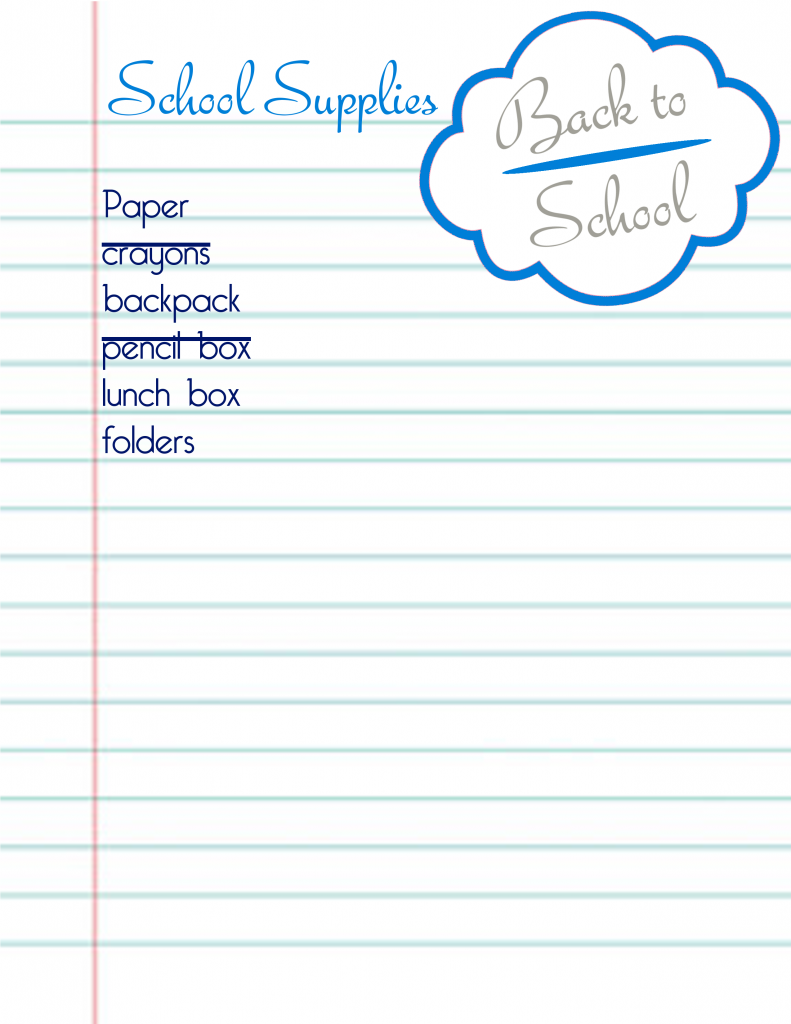 School Supplies
Back to
School
Paper
crayons
backpack
pencil box
lunch box
folders